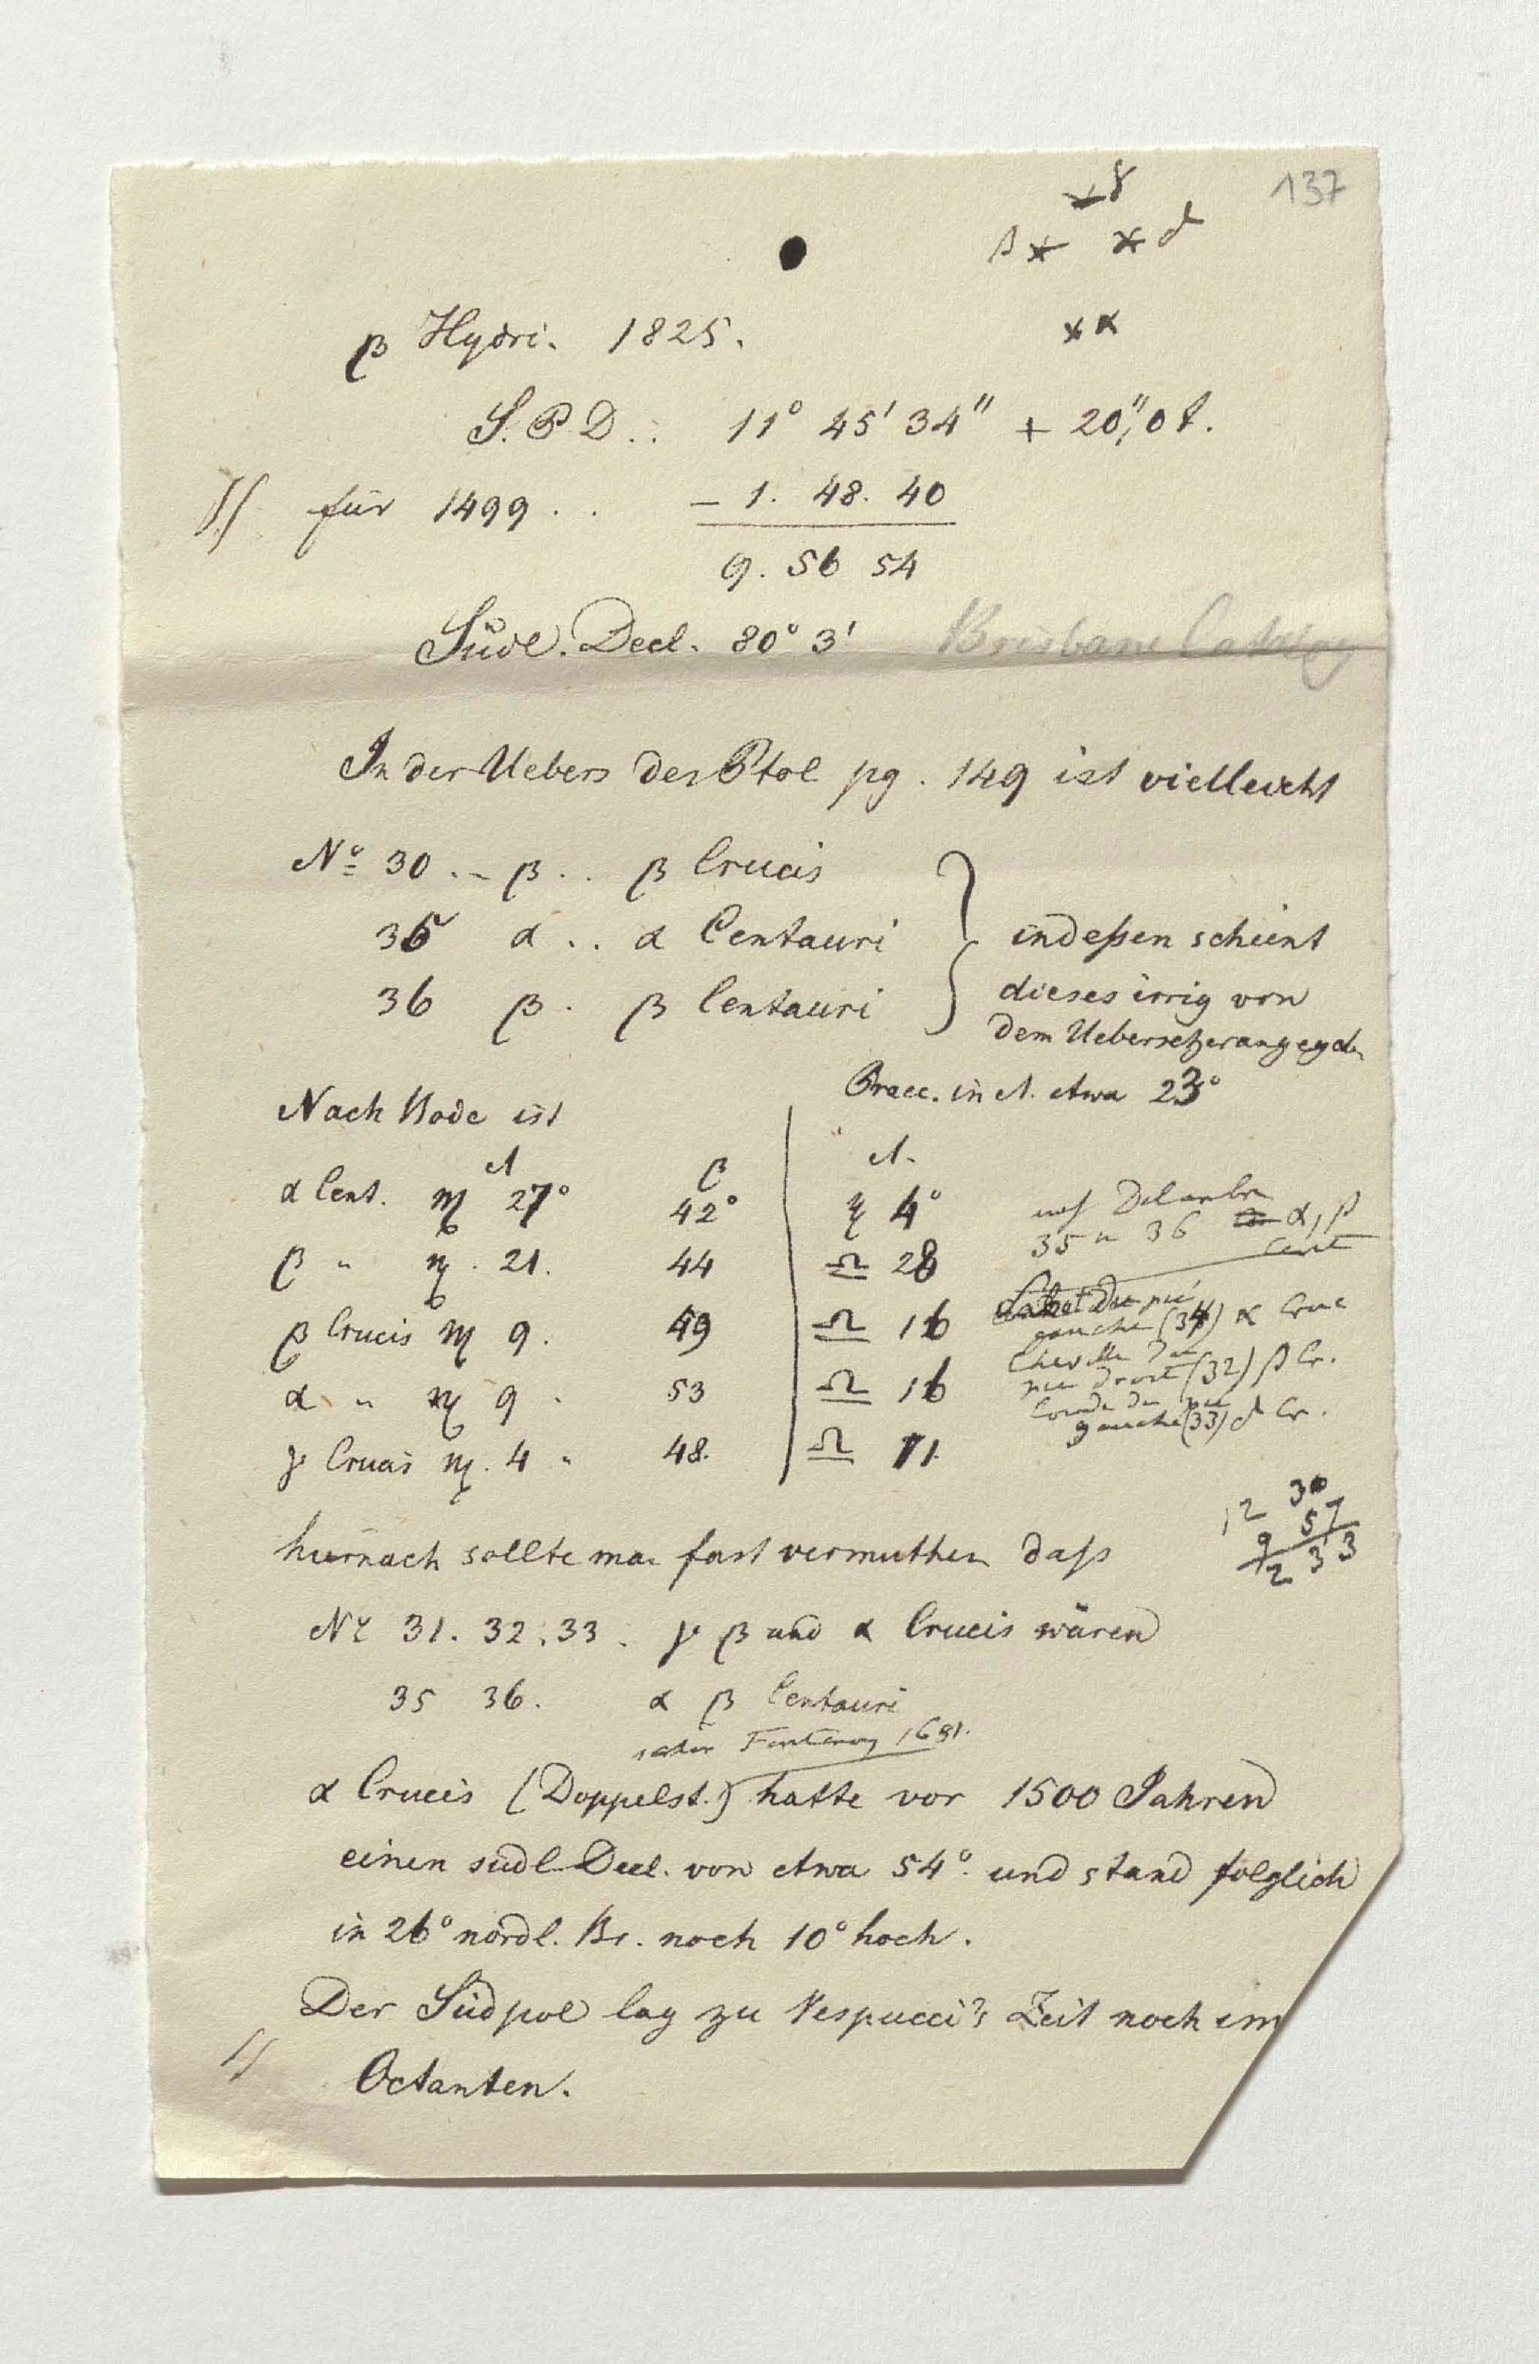 137
γ
β * * δ
* α
β Hydri. 1825.
S. P D.. 11° 45' 34" + 20",0 t.
für 1499 . . − 1. 48. 40
9. 56 54
Südl. Decl. 80° 3' Brisbane Catalog
In der Uebers des Ptol pg. 149 ist vielleicht
N° 30 .. β .. β Crucis
35 α .. α Centauri
36 β . β Centauri
indeßen scheint
dieses irrig von
dem Uebersetzer angegeb.
Praec. in Λ. etwa 23°
Nach Bode ist
Λ β Λ.
α Cent. ♏ 27° 42° ♏ 4°
β " ♏. 21. 44 ♎ 28
β Crucis ♏ 9. 49 ♎ 16
α " ♏ 9 . 53 ♎ 16
γ Crucis ♏. 4 " 48. ♎ 11.
nach Delambre
35 u 36 α, β
Cent
du pié
gauche (34) α Cruc
Cheville du
pié droit (32) β Cr.
du pié
gauche (33) δ Cr.
12 30
9 57
2 33
hiernach sollte man fast vermuthen daß
N° 31. 32. 33. γ β und α Crucis wären
35 36. α β Centauri
Fontenay 1681.
α Crucis (Doppelst.) hatte vor 1500 Jahren
einen südl Decl. von etwa 54° und stand folglich
in 26° nördl. Br. noch 10° hoch.
Der Südpol lag zu Vespucci's Zeit noch im
Octanten.